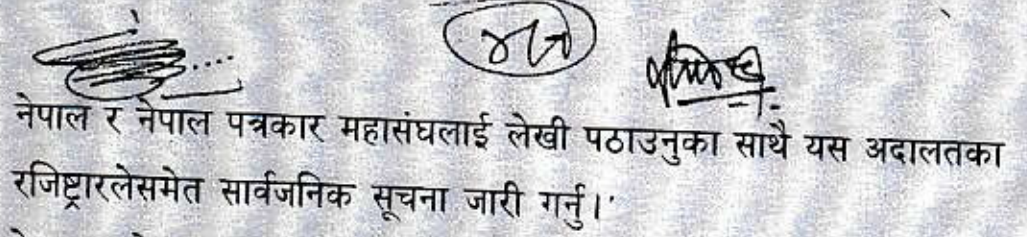 नेपाल र नेपाल पत्रकार महासंघलाई लेखी पठाउनुका साथै यस अदालतका
रजिष्ट्रारलेसमेत सार्वजनिक सूचना जारी गर्नु।